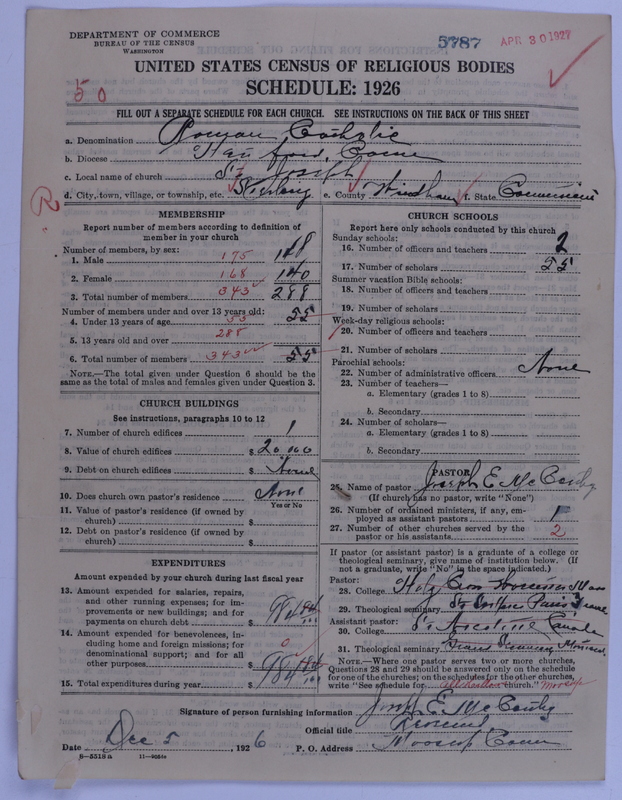 DEPARTMENT OF COMMERCE
BUREAU OF THE CENSUS
WASHINGTON
5787
APR 30 1927
50
UNITED STATES CENSUS OF RELIGIOUS BODIES
SCHEDULE: 1926
FILL OUT A SEPARATE SCHEDULE FOR EACH CHURCH. SEE INSTRUCTIONS ON THE BACK OF THIS SHEET
a. Denomination Roman Catholic
b. Diocese Hartford, Conn
c. Local name of church St Joseph
d. City, town, village, or township, etc. Sterling e. County Windham f. State Connecticut
R
MEMBERSHIP
Report number of members according to definition of
member in your church
Number of members, by sex:
1. Male 175 148
2. Female 168 140
3. Total number of members 343 288
Number of members under and over 13 years old:
4. Under 13 years of age 55 55
5. 13 years old and over 288
6. Total number of members 343 55
NOTE.—The total given under Question 6 should be
same as the total of males and females given under Question 3.
CHURCH BUILDINGS
See instructions, paragraphs 10 to 12
7. Number of church edifices 1
8. Value of church edifices $ 20,000
9. Debt on church edifices $ None
10. Does church own pastor's residence None
Yes or No
11. Value of pastor's residence (if owned by
church) $
12. Debt on pastor's residence (if owned by
church) $
EXPENDITURES
Amount expended by your church during last fiscal year
13. Amount expended for salaries, repairs,
and other running expenses; for im-
provements or new buildings; and for
payments on church debt $ 984
14. Amount expended for benevolences, in-
cluding home and foreign missions; for
denominational support; and for all
other purposes $ 0
15. Total expenditures during year $ 984
CHURCH SCHOOLS
Report here only schools conducted by this church
Sunday schools:
16. Number of officers and teachers 2
17. Number of scholars 55
Summer vacation Bible schools:
18. Number of officers and teachers
19. Number of scholars
Week-day religious schools:
20. Number of officers and teachers
21. Number of scholars
Parochial schools:
22. Number of administrative officers None
23. Number of teachers—
a. Elementary (grades 1 to 8)
b. Secondary
24. Number of scholars—
a. Elementary (grades 1 to 8)
b. Secondary
PASTOR
25. Name of pastor Joseph E. McCarthy
(If church has no pastor, write "None")
26. Number of ordained ministers, if any, em-
ployed as assistant pastors 1
27. Number of other churches served by the
pastor or his assistants 2
If pastor (or assistant pastor) is a graduate of a college or
theological seminary, give name of institution below. (If
not a graduate, write "No" in the space indicated.)
Pastor:
28. College Holy Cross Worcester Mass
29. Theological seminary St Sulpice Paris France
Assistant pastor:
30. College Canada
31. Theological seminary Grand Seminary Montreal
NOTE.—Where one pastor serves two or more churches,
Questions 28 and 29 should be answered only on the schedule
for one of the churches; on the schedules for the other churches,
write "See schedule for All Hallows church." Moosup
Signature of person furnishing information Joseph E. McCarthy
Official title
Date Dec 5, 1926 P. O. Address Moosup Conn
8-5518a 11-9051a